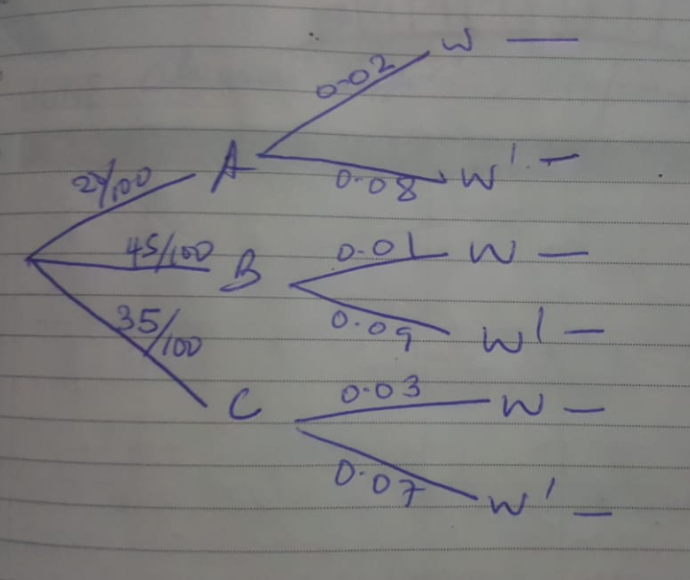 0.02 W —
A
2?/100 0.08 W' —
45/100 B 0.01 W —
0.09 W' —
35/100
C 0.03 W —
0.07 W' —